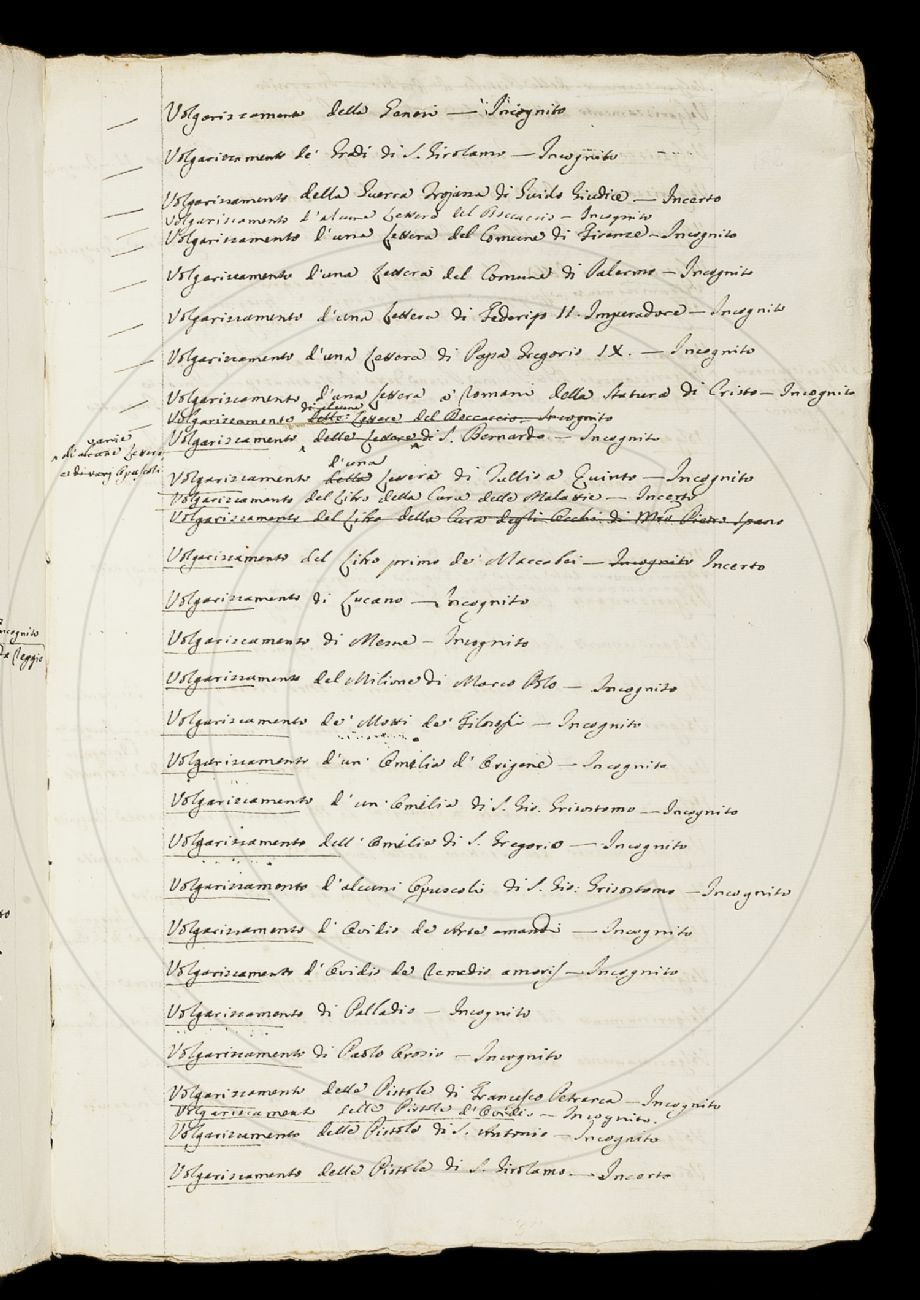 Volgarizzamento della Genesi — Incognito
Volgarizzamento de' Gradi di S. Girolamo — Incognito
Volgarizzamento della Guerra Trojana di Guido Giudice — Incerto
Volgarizzamento d'alcune Lettere del Boccaccio — Incognito
Volgarizzamento d'una Lettera del Comune di Firenze — Incognito
Volgarizzamento d'una Lettera del Comune di Palermo — Incognito
Volgarizzamento d'una Lettera di Federigo II. Imperadore — Incognito
Volgarizzamento d'una Lettera di Papa Gregorio IX. — Incognito
Volgarizzamento d'una Lettera a' Romani della Statura di Cristo — Incognito
di alcune
Volgarizzamento delle Lettere del Boccaccio. Incognito
Volgarizzamento delle Lettere di S. Bernardo — Incognito
varie
di alcune Lettere
e di varj Opuscoli
d'una
Volgarizzamento della Lettera di Tullio a Quinto — Incognito
Volgarizzamento del Libro della Cura delle Malattie — Incerto
Volgarizzamento del Libro della Cura degli Occhi di Mro Pietro Spano
Volgarizzamento del Libro primo de' Maccabei — Incognito Incerto
Volgarizzamento di Lucano — Incognito
Volgarizzamento di Mesue — Incognito
Incognito
da Reggio
Volgarizzamento del Milione di Marco Polo — Incognito
Volgarizzamento de' Motti de' Filosofi — Incognito
Volgarizzamento d'un' Omelia d' Origene — Incognito
Volgarizzamento d'un' Omelia di S. Gio. Grisostomo — Incognito
Volgarizzamento dell' Omelie di S. Gregorio — Incognito
Volgarizzamento d'alcuni Opuscoli di S. Gio: Grisostomo — Incognito
Volgarizzamento d' Ovidio de Arte amandi — Incognito
Volgarizzamento d' Ovidio de Remedio amoris — Incognito
Volgarizzamento di Palladio — Incognito
Volgarizzamento di Paolo Orosio — Incognito
Volgarizzamento delle Pistole di Francesco Petrarca — Incognito
Volgarizzamento delle Pistole d'Ovidio — Incognito.
Volgarizzamento delle Pistole di S. Antonio — Incognito
Volgarizzamento delle Pistole di S. Girolamo. — Incerto